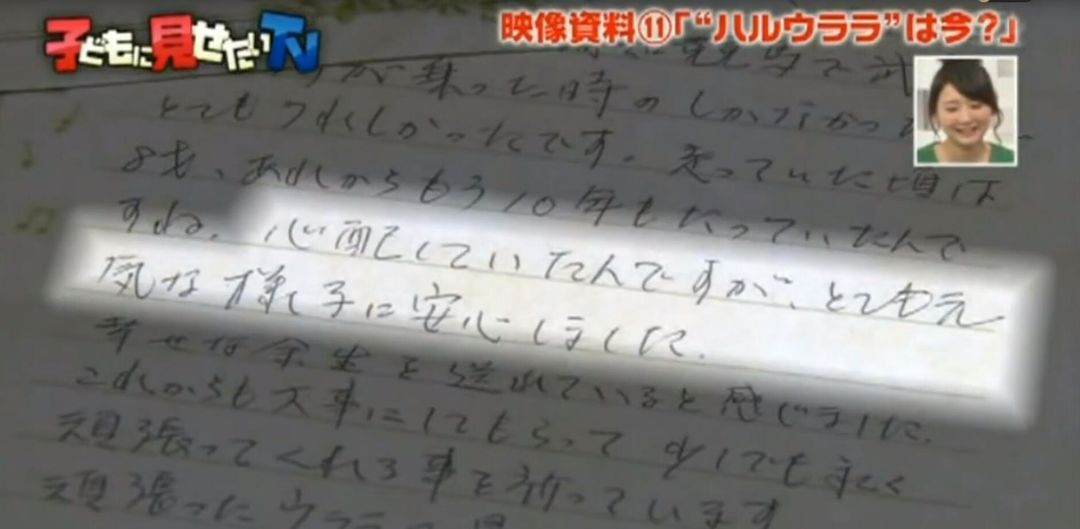 子どもに見せたいTV
映像資料⑪「“ハルウララ”は今?」
が乗った時のしかなかった
とてもうれしかったです。走っていた頃は
8才、あれからもう10年もたっていたんで
すね。心配していたんですが、とても元
気な様子に安心しました。
幸せな余生を送れていると感じました。
これからも大事にしてもらって少しでも永く
頑張ってくれる事を祈っています
頑張ったウララ